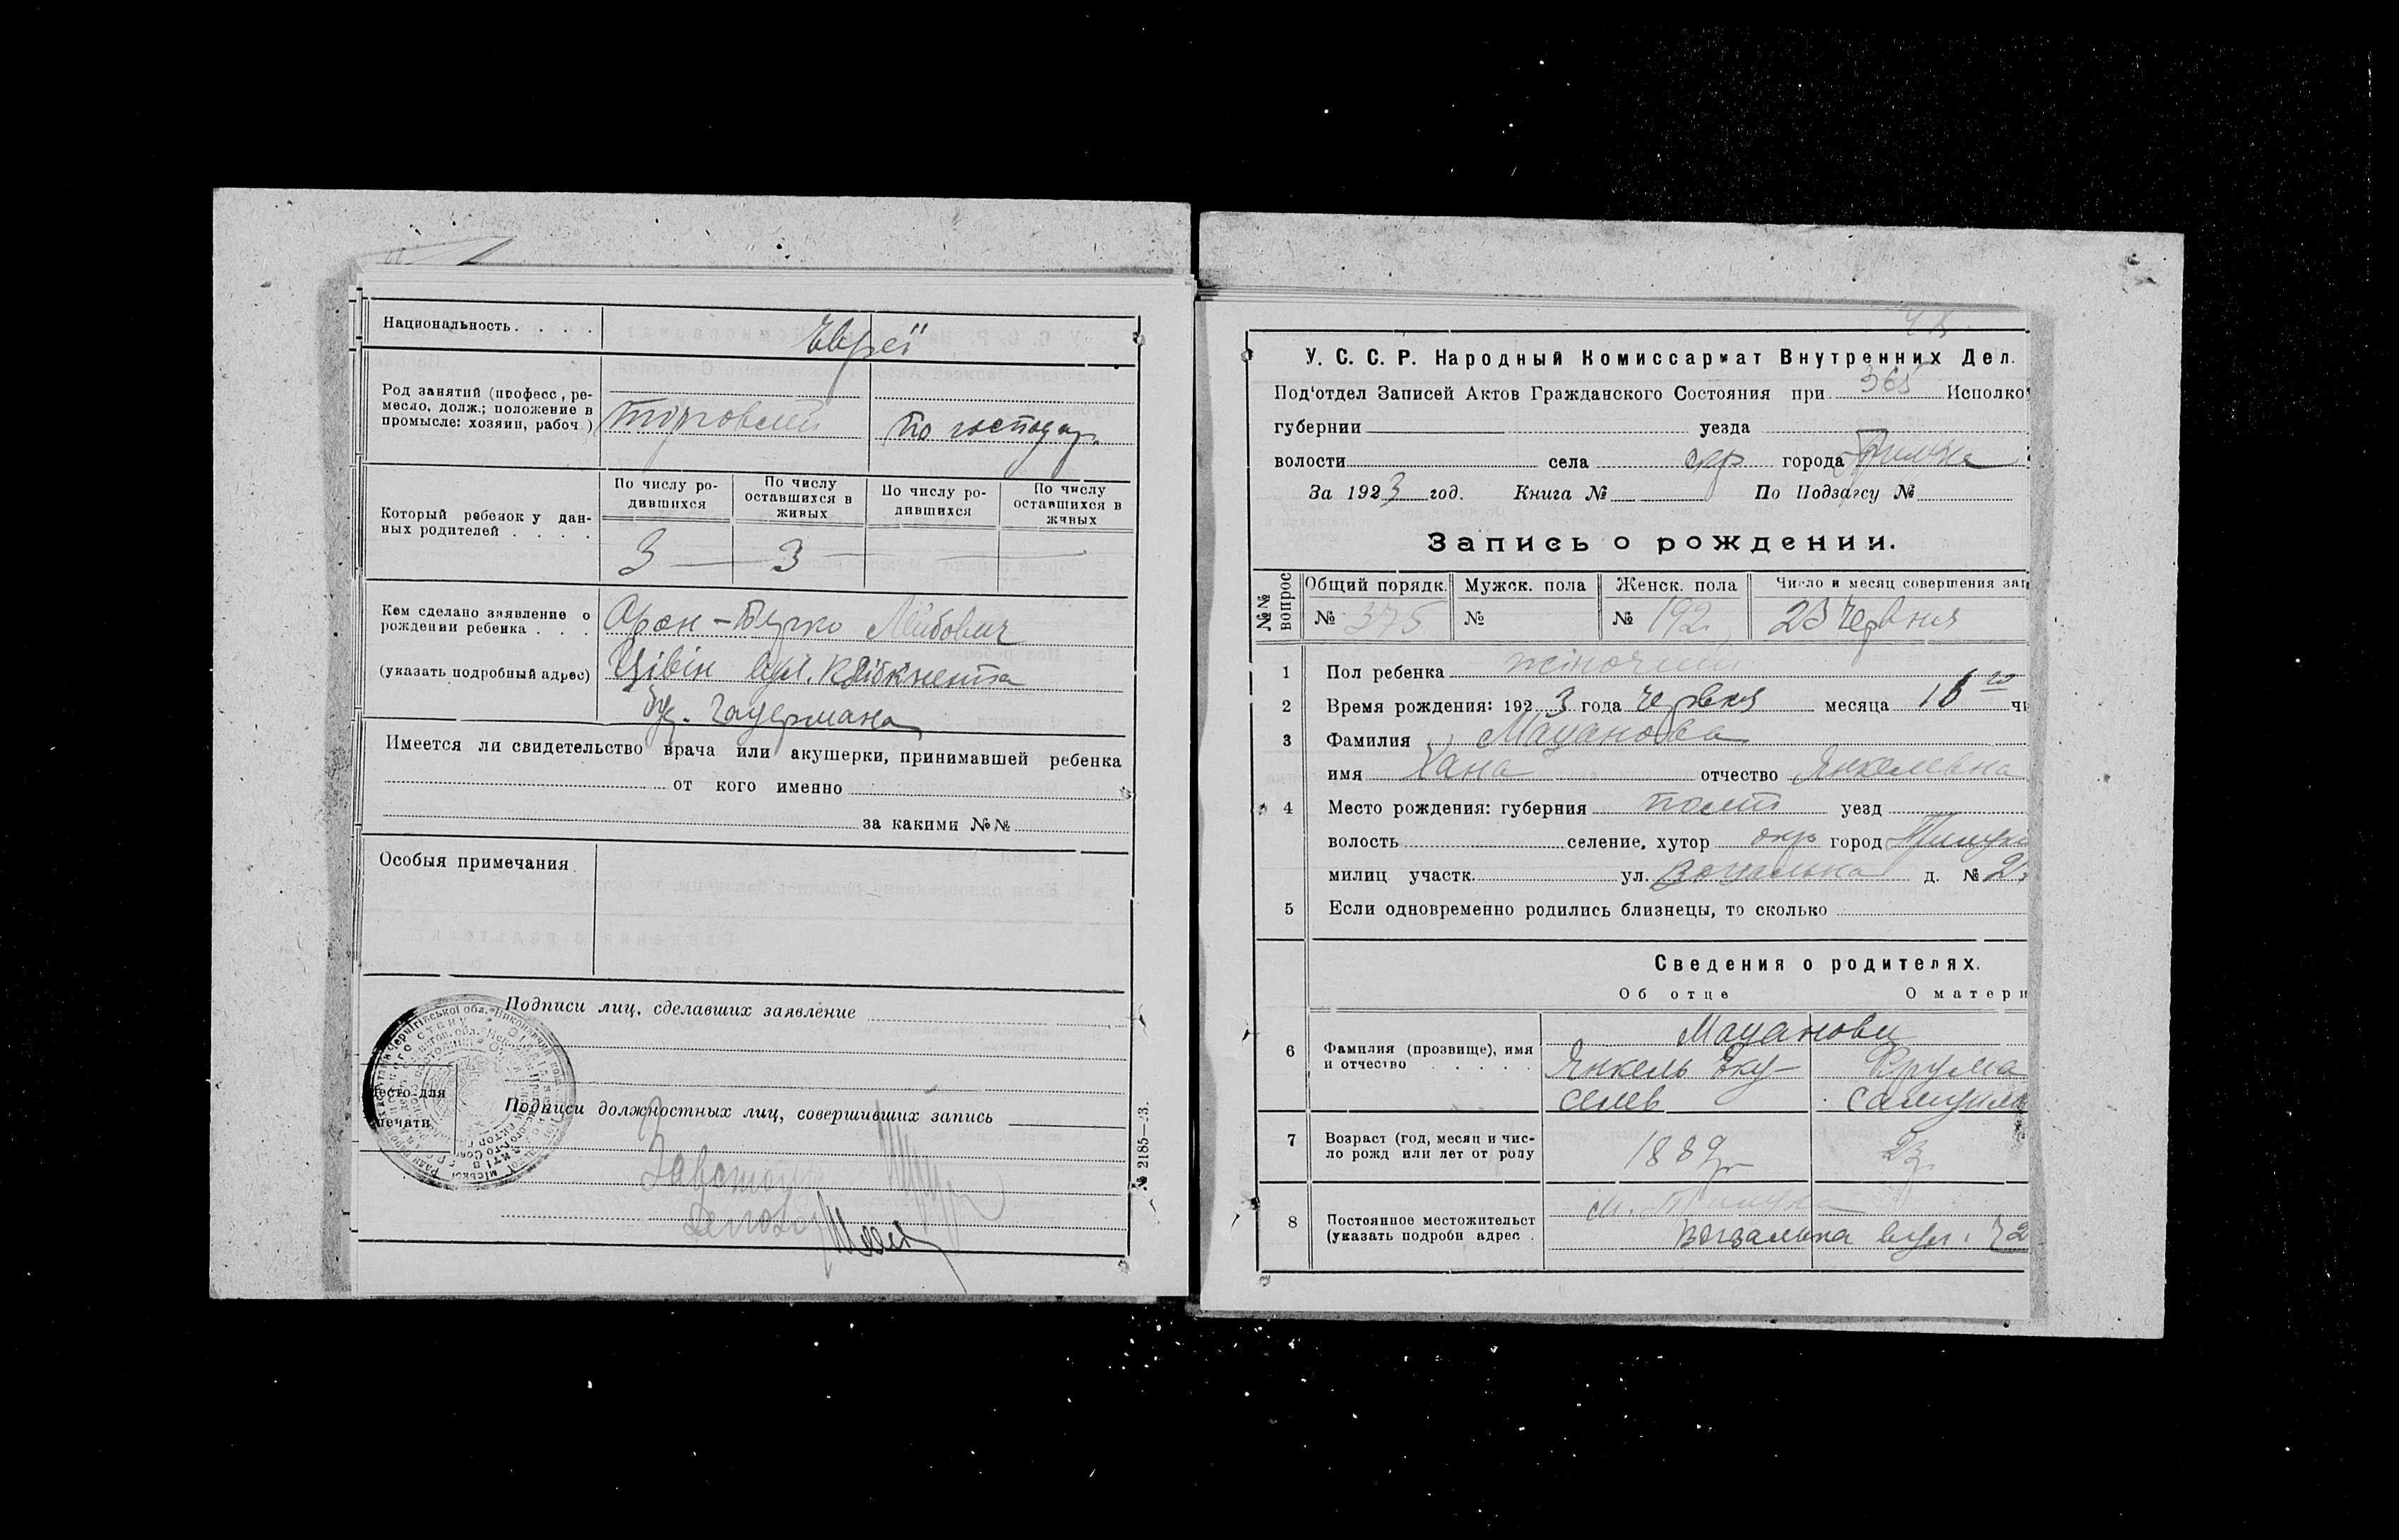 Национальность . . . .
Євреї
Род занятий (професс, ре-
месло, долж.; положение в
промысле: хозяин, рабоч.)
торговлей
по господар.
Который ребенок у дан-
ных родителей . . . .
По числу ро-
дившихся
По числу
оставшихся в
живых
По числу ро-
дившихся
По числу
оставшихся в
живых
3 — 3
Кем сделано заявление о
рождении ребенка . . .
(указать подробный адрес)
Арон-Берко Лейбович
Цівін вул. Лібкнехта
буд.
Имеется ли свидетельство врача или акушерки, принимавшей ребенка
от кого именно
за какими №№
Особыя примечания
Подписи лиц, сделавших заявление
Место для
печати
Подписи должностных лиц, совершивших запись
№ 2185—23.
У. С. С. Р. Народный Комиссариат Внутренних Дел.
Под'отдел Записей Актов Гражданского Состояния при Исполко
губернии уезда
волости села окр города
За 1923 год. Книга № По Подзагсу №
Запись о рождении.
№№
вопрос
Общий порядк.
№ 375
Мужск. пола
№
Женск. пола
№ 192
Число и месяц совершения зап
23 Червня
1 Пол ребенка жіночий
2 Время рождения: 1923 года червня месяца 16 го чи
3 Фамилия Мацанова
имя Хана отчество Янкелевна
4 Место рождения: губерния Полт уезд
волость селение, хутор окр город Прилуки
милиц участк. ул. Вокзальна д. № 2
5 Если одновременно родились близнецы, то сколько
Сведения о родителях.
Об отце О матери
6 Фамилия (прозвище), имя
и отчество . . . . .
Мацанови
Янкель Єку-
селев
Фрума
Самуил
7 Возраст (год, месяц и чис-
ло рожд или лет от роду
1889 р
23 р.
8 Постоянное местожительст
(указать подробн адрес .
м. Прилука
Вокзальна вул. 2